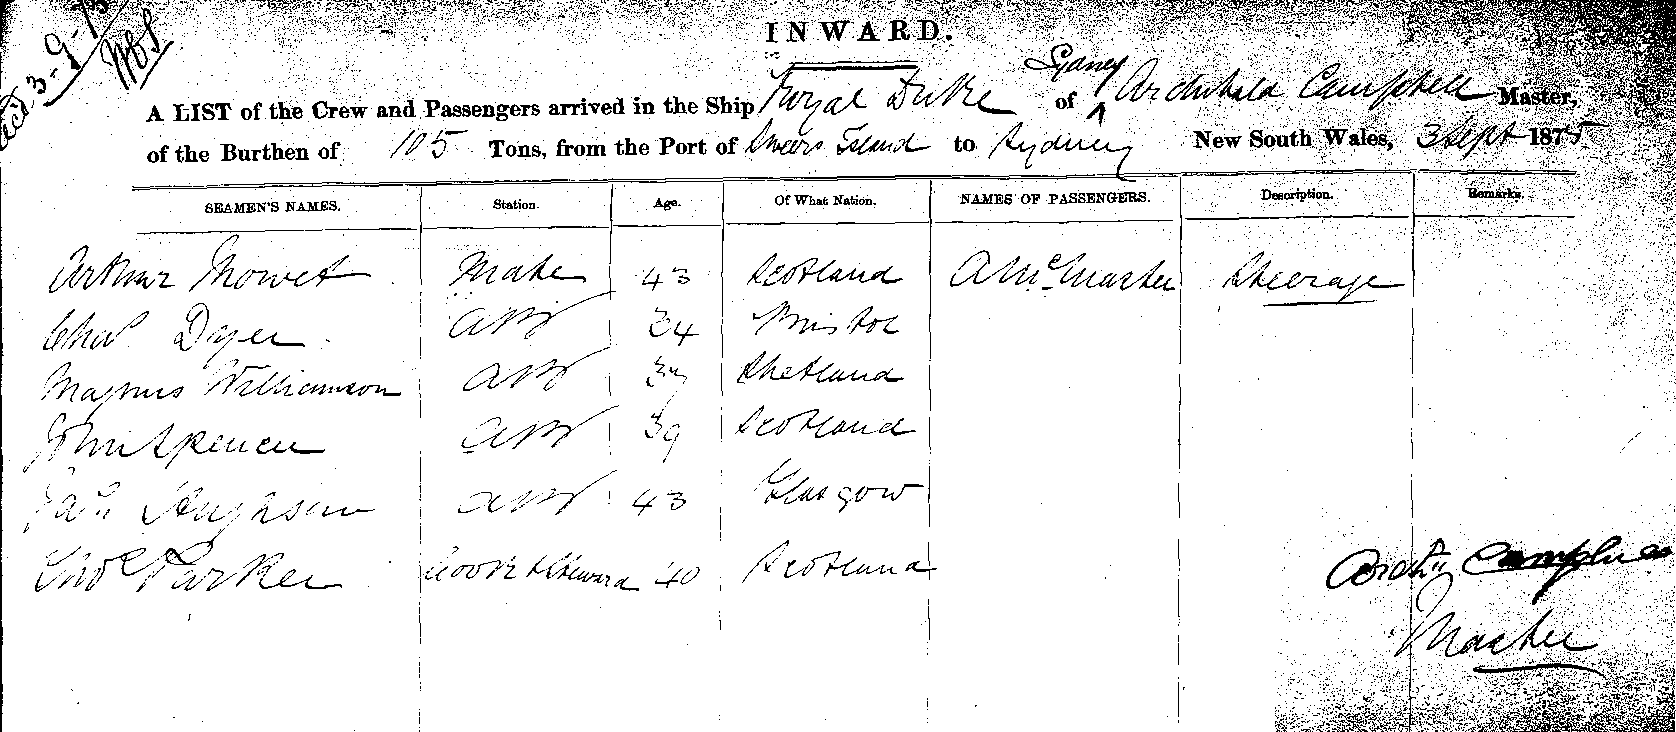 3-9-75
INWARD.
Sydney
A LIST of the Crew and Passengers arrived in the Ship Royal Duke of ^ Archibald Campbell Master,
of the Burthen of 105 Tons, from the Port of Sweers Island to Sydney New South Wales, 3 Sept 1875.
SEAMEN'S NAMES. Station. Age. Of What Nation. NAMES OF PASSENGERS. Description. Remarks.
Arthur Mowet Mate 43 Scotland A McMaster Steerage
Chas Dyer AB 34 Bristol
Magnus Williamson AB 37 Shetland
John Spencer AB 39 Scotland
Jas Hughson AB 43 Glasgow
Thos Parker Cook & Steward 40 Scotland
Archd Campbell
Master